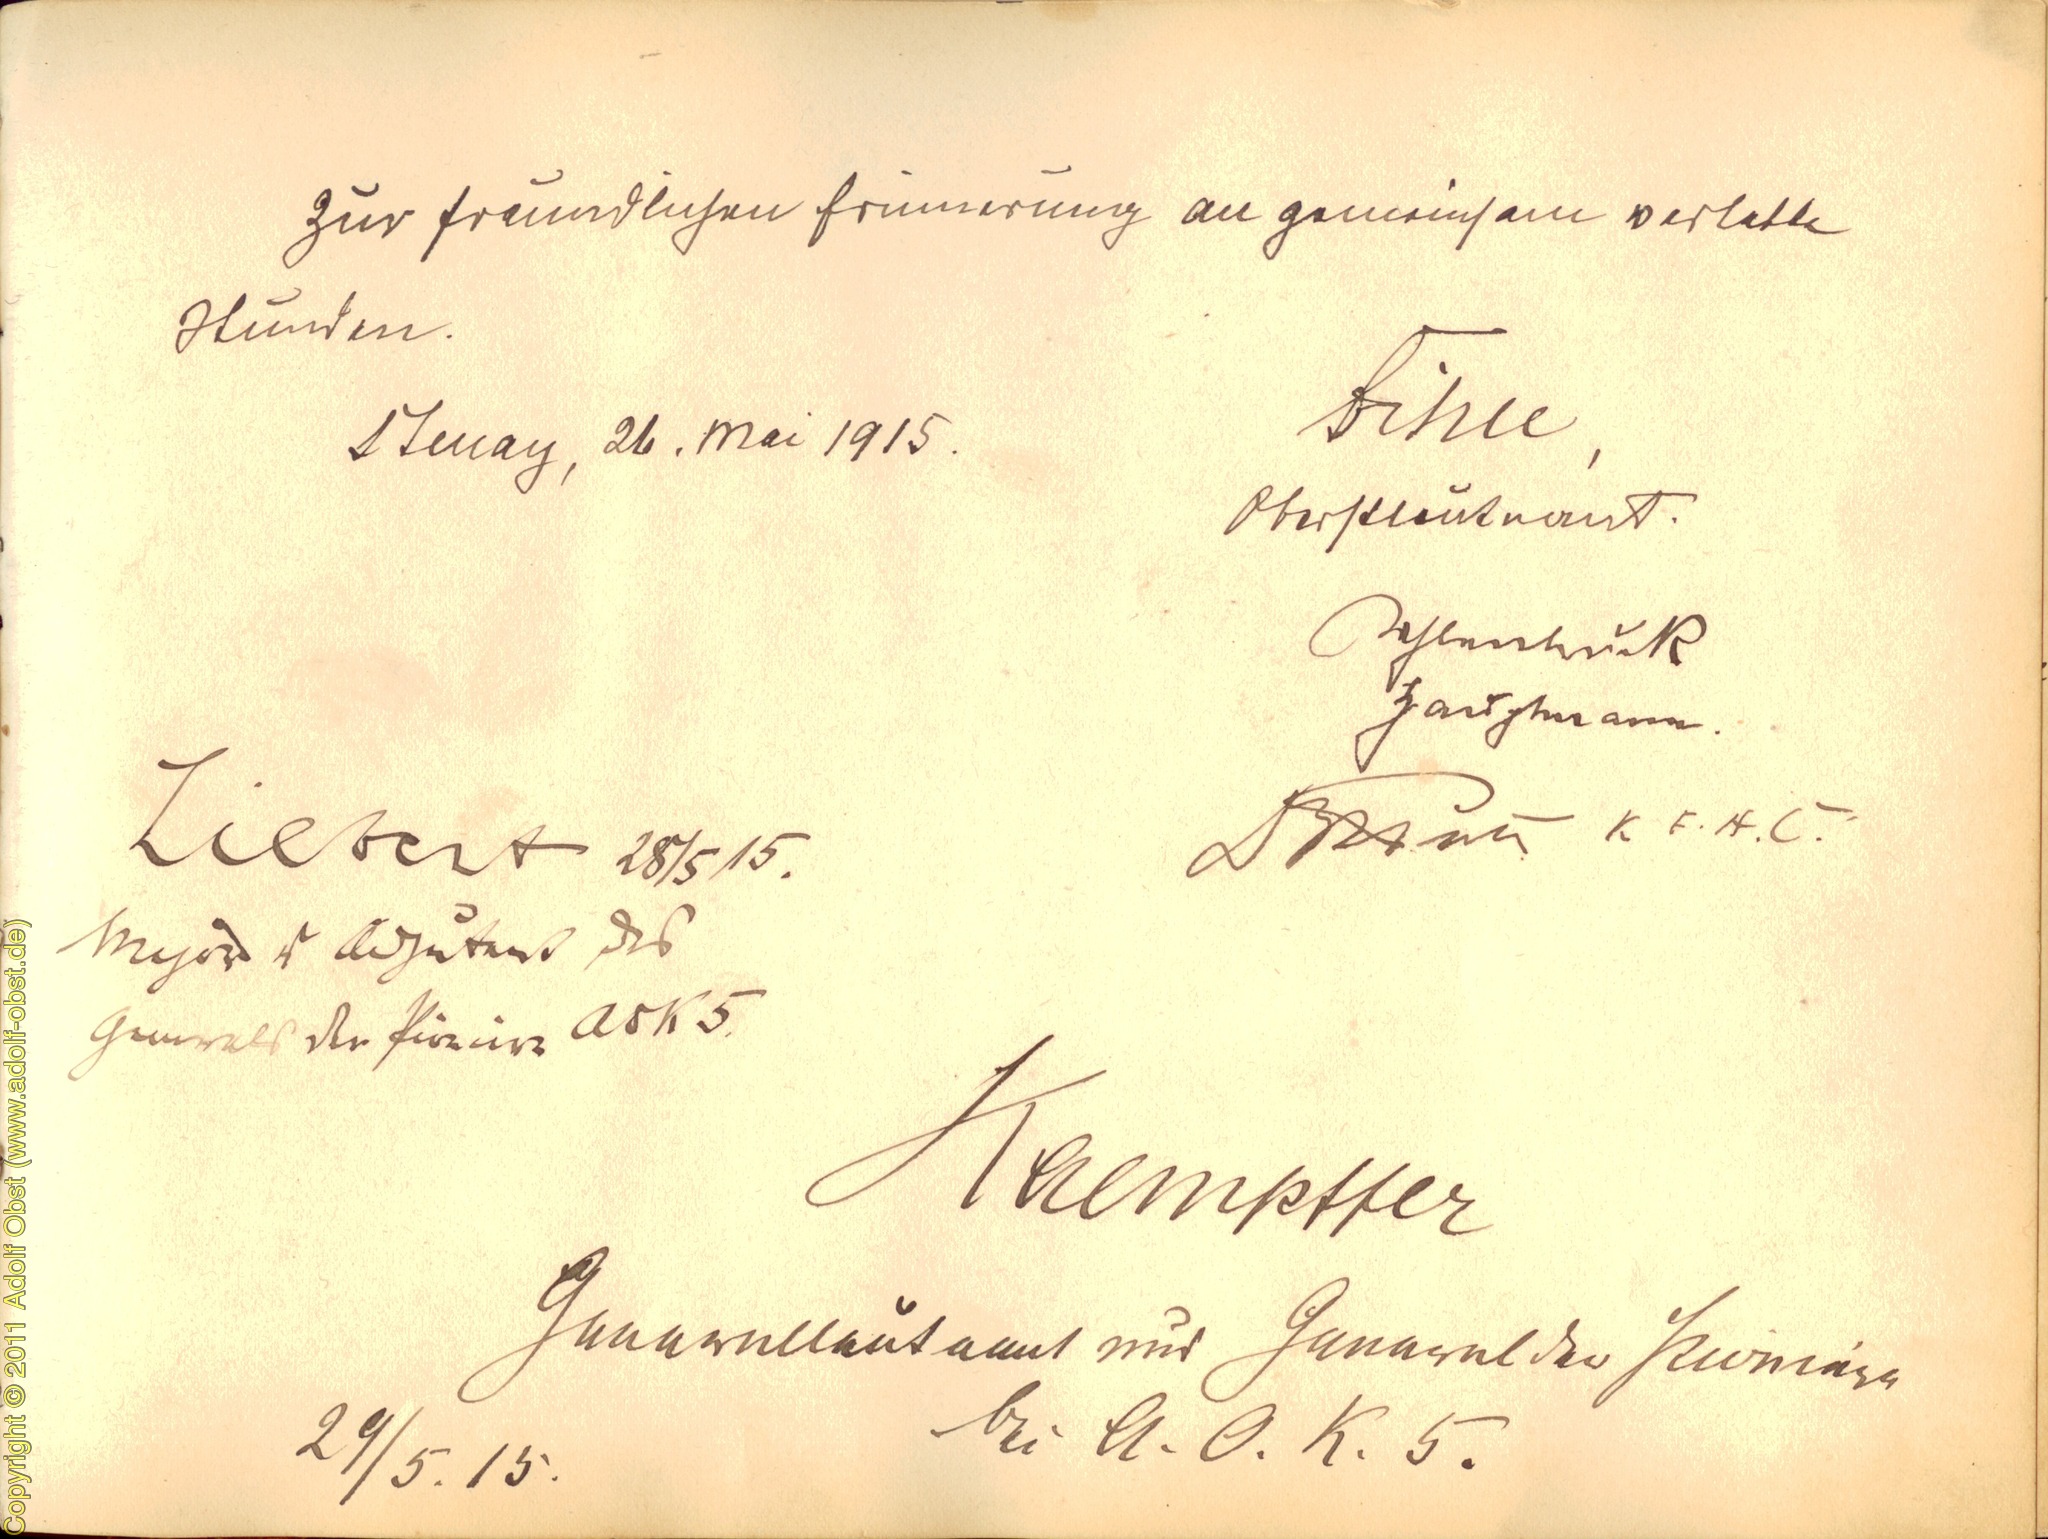 Zur freundlichen Erinnerung an gemeinsam verlebte
Stunden.
Stenay, 26. Mai 1915.
Oberstleutnant.
Hauptmann.
K. F. A. C.
Liebert 28/5 15.
Major u Adjutant des
Generals der Pioniere AOK 5.
Kaempffer
Generalleutnant und General der Pioniere
bei A. O. K. 5.
29/5. 15.
Copyright © 2011 Adolf Obst (www.adolf-obst.de)